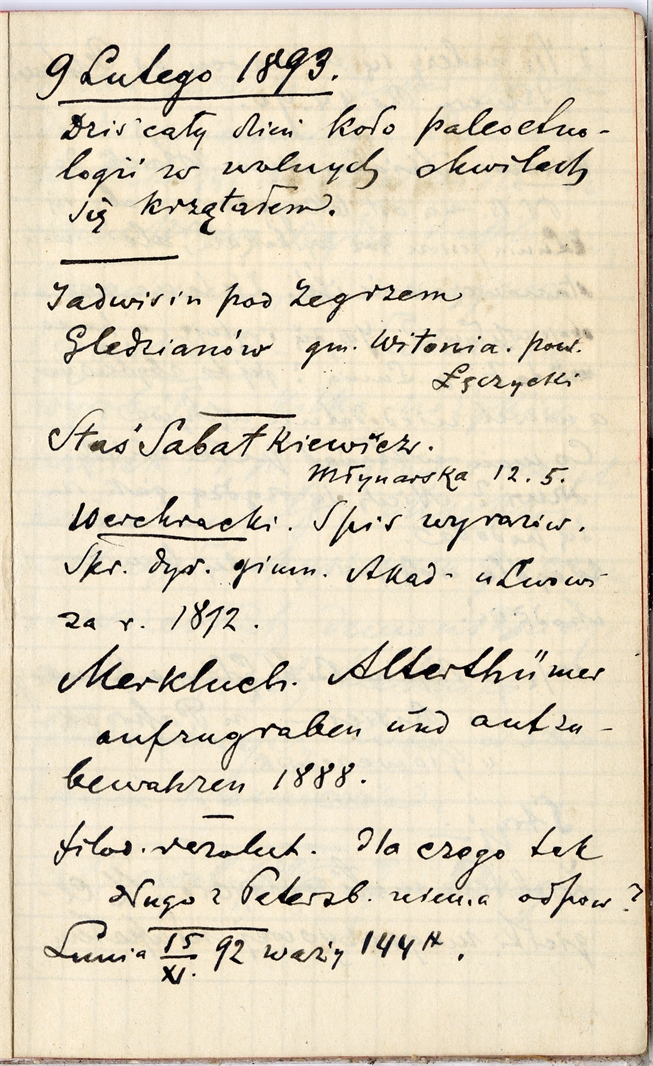 9 Lutego 1893.
Dziś cały dzień koło paleoetno-
logii w wolnych chwilach
się krzątałem.
Jadwisin pod Zegrzem
Gledzianów gm. Witonia. pow.
Łęczycki
Staś Sabatkiewicz.
Młynarska 12. 5.
Werchracki. Spis wyrazów.
Spr. dyr. gimn. Akad. u Lwowi
za r. 1872.
Merkbuch. Alterthümer
aufzugraben und aufzu-
bewahren 1888.
Dla czego tak
długo z Petersb. niema odpow?
Lunia 15/XI. 92 waży 144 ℔.